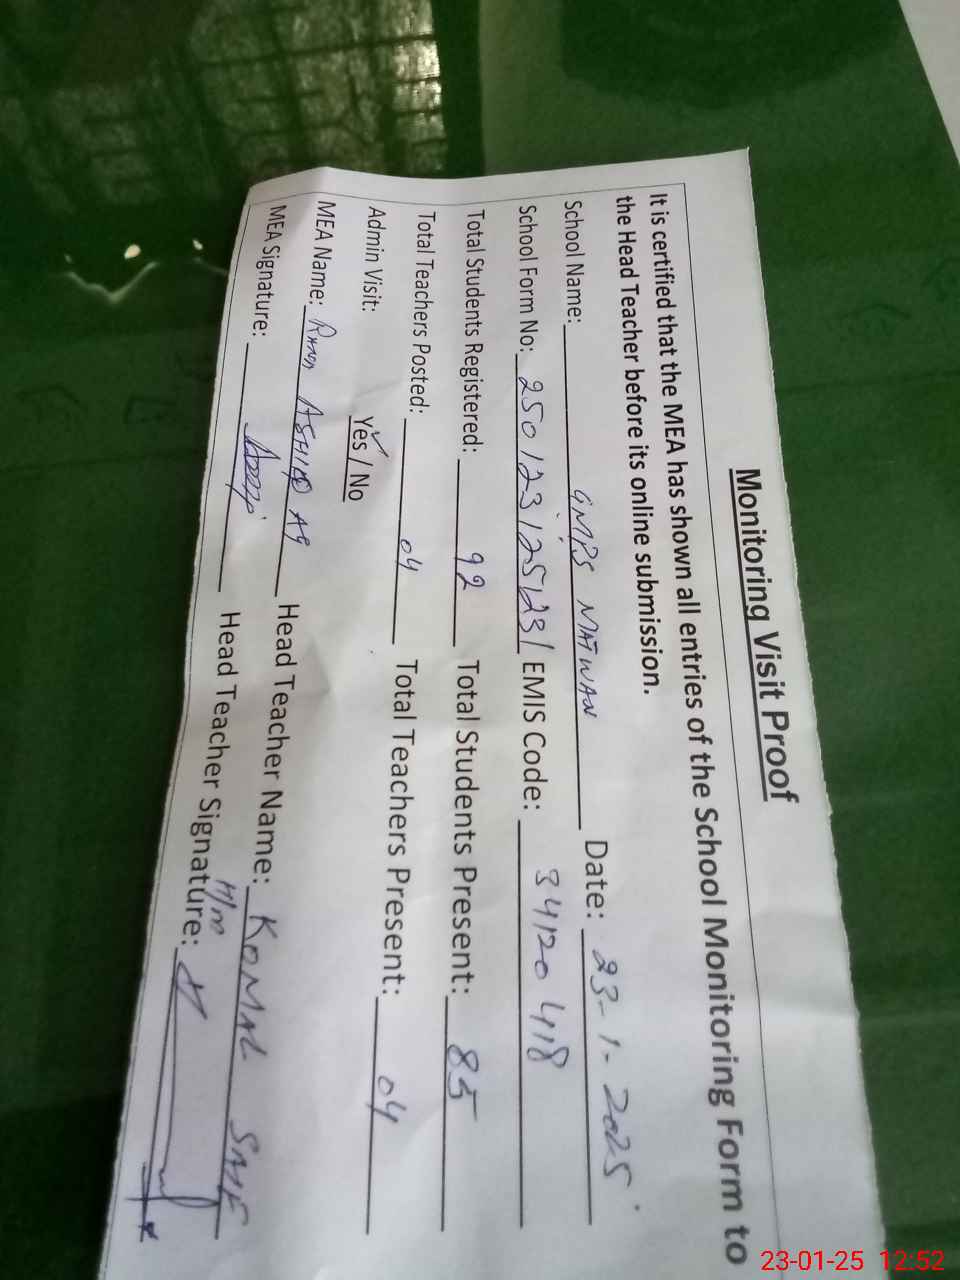 Monitoring Visit Proof
It is certified that the MEA has shown all entries of the School Monitoring Form to
the Head Teacher before its online submission.
School Name: GMPS MATWAN Date: 23-1-2025
School Form No: 250123125123/ EMIS Code: 34120418
Total Students Registered: 92 Total Students Present: 85
Total Teachers Posted: 04 Total Teachers Present: 04
Admin Visit: Yes / No
MEA Name: ASHIQ Head Teacher Name: KOMAL
MEA Signature: Head Teacher Signature:
23-01-25 12:52